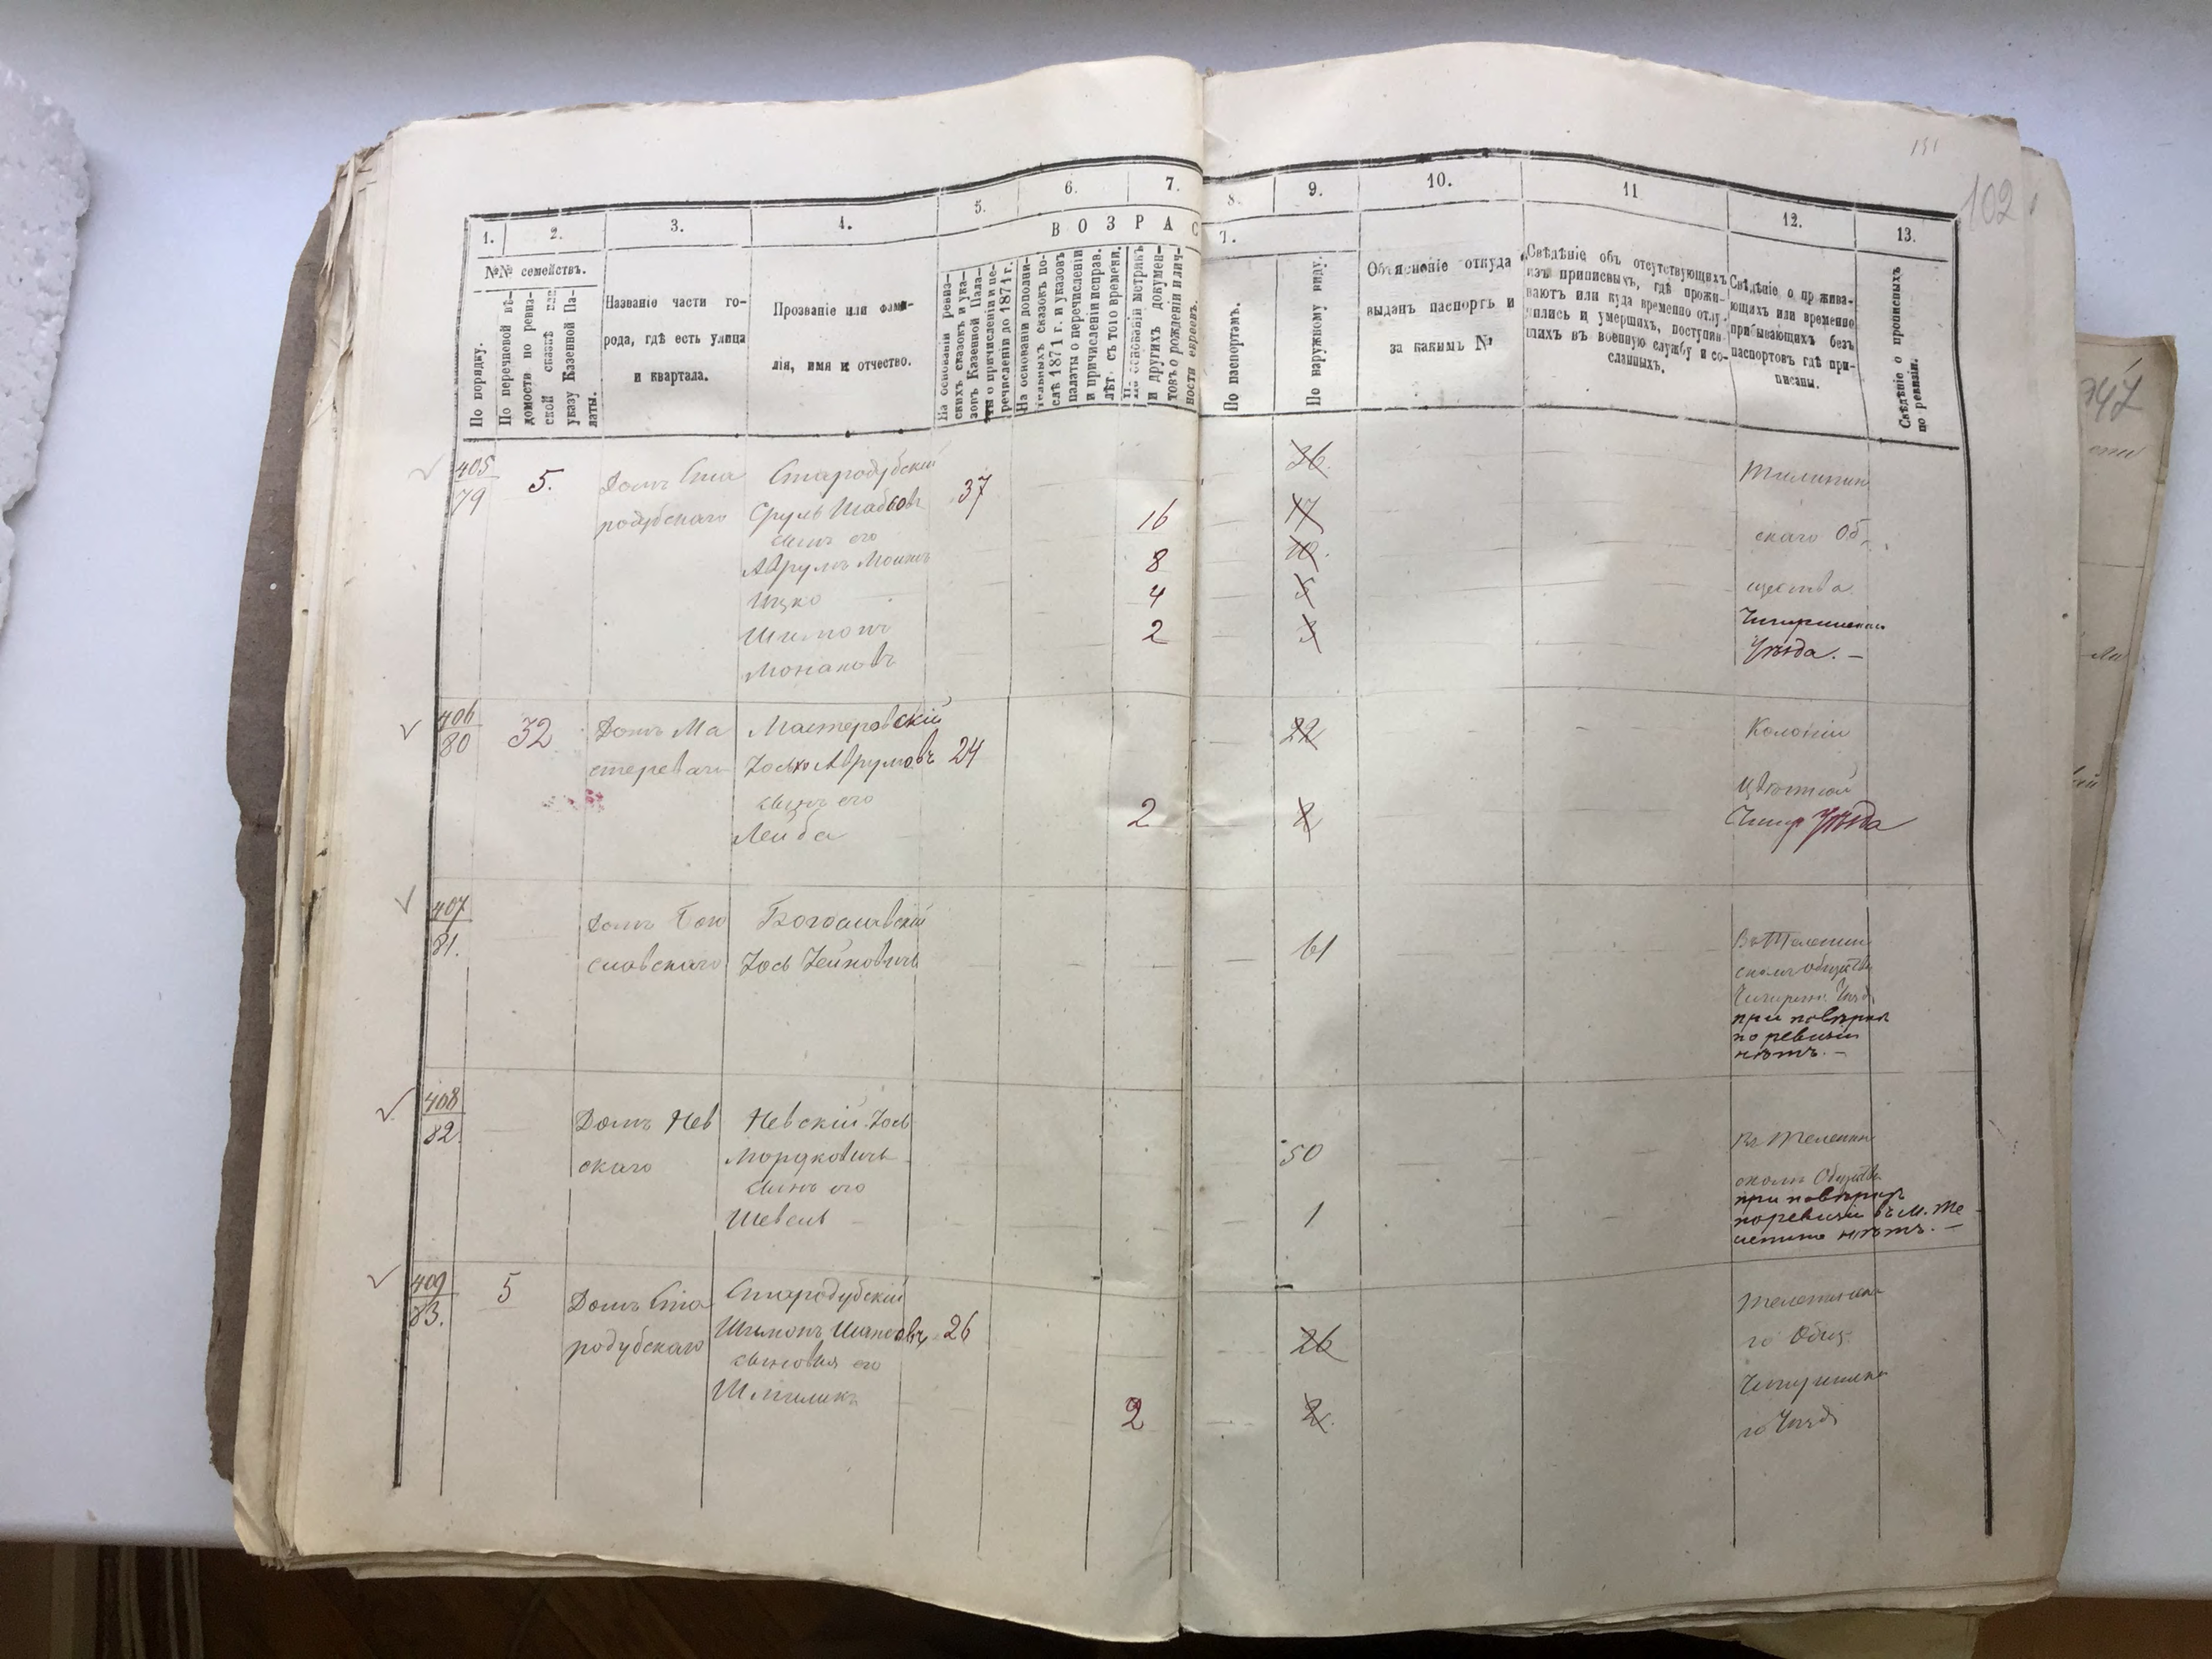 151
102
1.
2.
3.
4.
5.
6.
7.
8.
9.
10.
11
12.
13.
В О З Р А С Т.
№№ семействъ.
По порядку.
По перечневой вѣ-
домости по ревиз-
ской сказкѣ или
указу Казенной Па-
латы.
Названіе части го-
рода, гдѣ есть улица
и квартала.
Прозваніе или фами-
лія, имя и отчество.
На основаніи ревиз-
скихъ сказокъ и ука-
зовъ Казенной Пала-
ты о причисленіи и пе-
речисленіи до 1871 г.
На основаніи дополни-
тельныхъ сказокъ по-
слѣ 1871 г. и указовъ
палаты о перечисленіи
и причисленіи исправ.
лѣтъ съ того времени.
На основаніи метрикъ
и другихъ докумен-
товъ о рожденіи и лич-
ности евреевъ.
По паспортамъ.
По наружному виду.
Объясненіе откуда
выданъ паспортъ и
за какимъ №
Свѣдѣніе объ отсутствующихъ
изъ приписныхъ, гдѣ прожи-
ваютъ или куда временно отлу-
чились и умершихъ, поступив-
шихъ въ военную службу и со-
сланныхъ.
Свѣдѣніе о прожива-
ющихъ или временно
прибывающихъ безъ
паспортовъ гдѣ при-
писаны.
Свѣдѣніе о прописныхъ
по ревизіи.
405
79
5.
Домъ Ста
родубскаго
Стародубскій
Сруль Шабсовъ
37
36.
сынъ его
16
17
Аврумъ Мошко
8
10.
Ицко
4
5
Шимонъ
2
3
Монаковъ
скаго Об-
щества
Чигиринскаго
Уѣзда. —
406
80
32
Домъ Ма
стерѣваго
Мастеровскій
Іосько Аврумовъ
24
22
сынъ его
Лейба
2
2
Колоніи
Цвѣтной
Чигир Уѣзда
407
81.
Домъ Бого
славскаго
Богославскій
Іось Хейновичъ
61
скомъ обществѣ
Чигирин. Уѣзд.
при повѣркѣ
по ревизіи
нѣтъ. —
408
82.
Домъ Нев
скаго
Невскій Іось
Мордковичъ
50
сынъ его
Шевель
1
скомъ Обществѣ
при повѣркѣ
по ревизіи въ м. Те
лепино нѣтъ. —
409
83.
5
Домъ Ста
родубскаго
Стародубскій
Шимонъ Шапсовъ
26
26
сыновья его
Шмилик
2
2.
го Общ.
Чигиринска
го Уѣзд
347